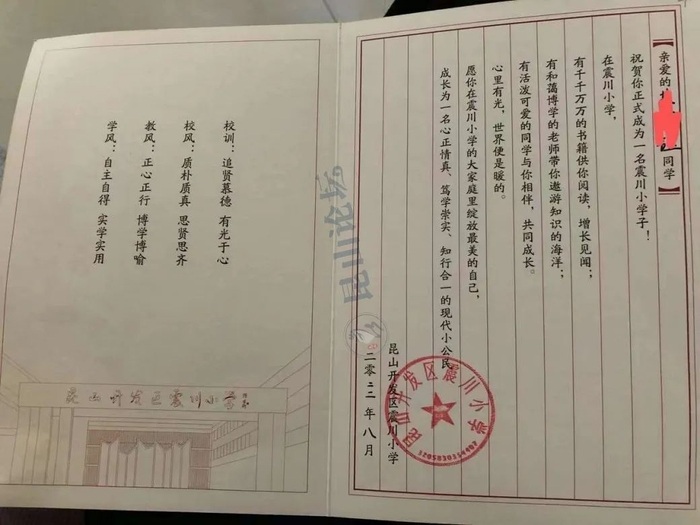 【亲爱的 同学】
祝贺你正式成为一名震川小学子！
在震川小学，
有千千万万的书籍供你阅读，增长见闻；
有和蔼博学的老师带你遨游知识的海洋；
有活泼可爱的同学与你相伴，共同成长。
心里有光，世界便是暖的。
愿你在震川小学的大家庭里绽放最美的自己，
成长为一名心正情真、笃学崇实、知行合一的现代小公民。
昆山开发区震川小学
二零二二年八月
昆山开发区震川小学
昆山论坛
校训：追贤慕德 有光于心
校风：质朴质真 思贤思齐
教风：正心正行 博学博喻
学风：自主自得 实学实用
昆山开发区震川小学